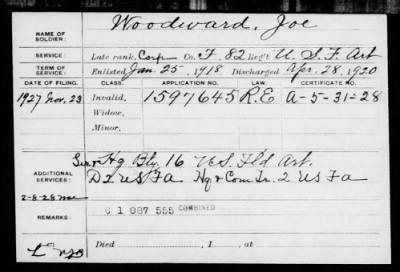 NAME OF SOLDIER: Woodward, Joe
SERVICE: Late rank, Corp Co. F, 82 Reg't U. S. F. Art
TERM OF SERVICE: Enlisted Jan. 25, 1918 Discharged Apr. 28, 1920
DATE OF FILING. CLASS. APPLICATION NO. LAW. CERTIFICATE NO.
1927 Nov. 23 Invalid, 1597645 R.E A-5-31-28
Widow,
Minor,
ADDITIONAL SERVICES: Hq Bty. 16 U.S. Fld Art.
D 2 US Fa Hq & Com Tr. 2 US Fa
2-8-28
REMARKS: C 1 087 555 COMBINED
Died , 1 , at